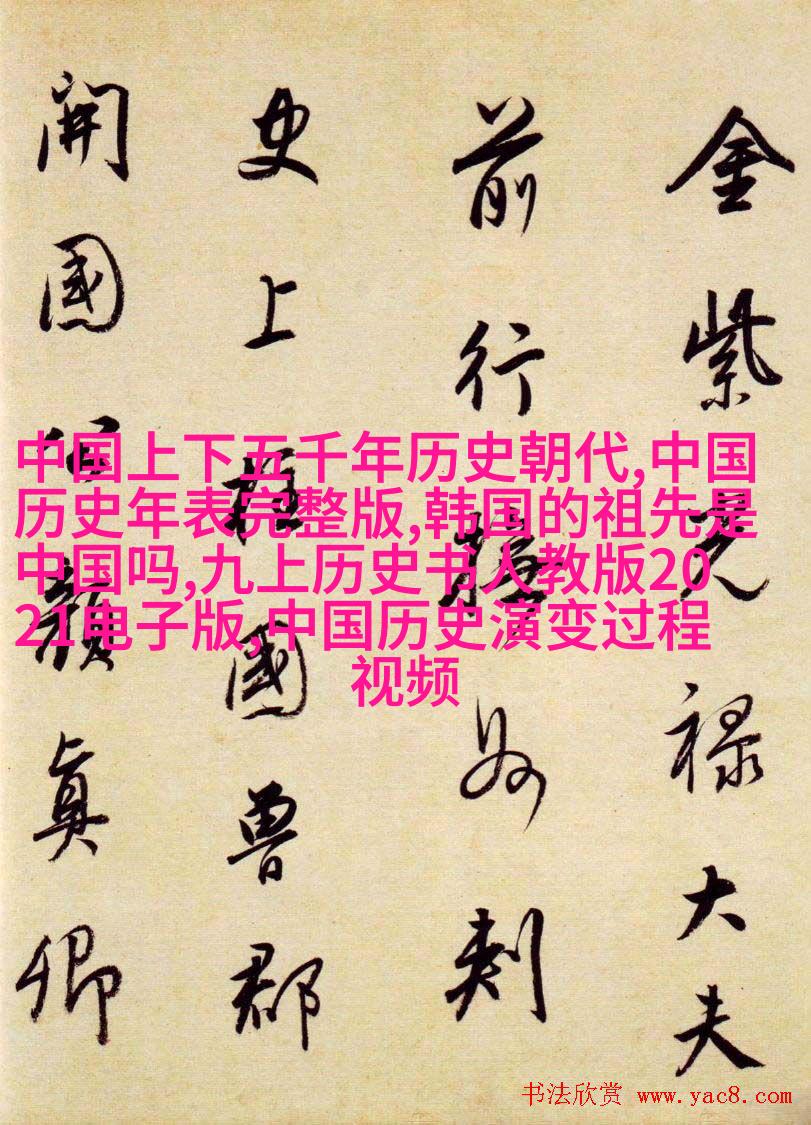 金紫光禄大夫
前行撫州刺
史上柱國魯郡
開國公顏真卿
中国上下五千年历史朝代,中国
历史年表完整版,韩国的祖先是
中国吗,九上历史书人教版20
21电子版,中国历史演变过程
视频
书法欣赏 www.yac8.com